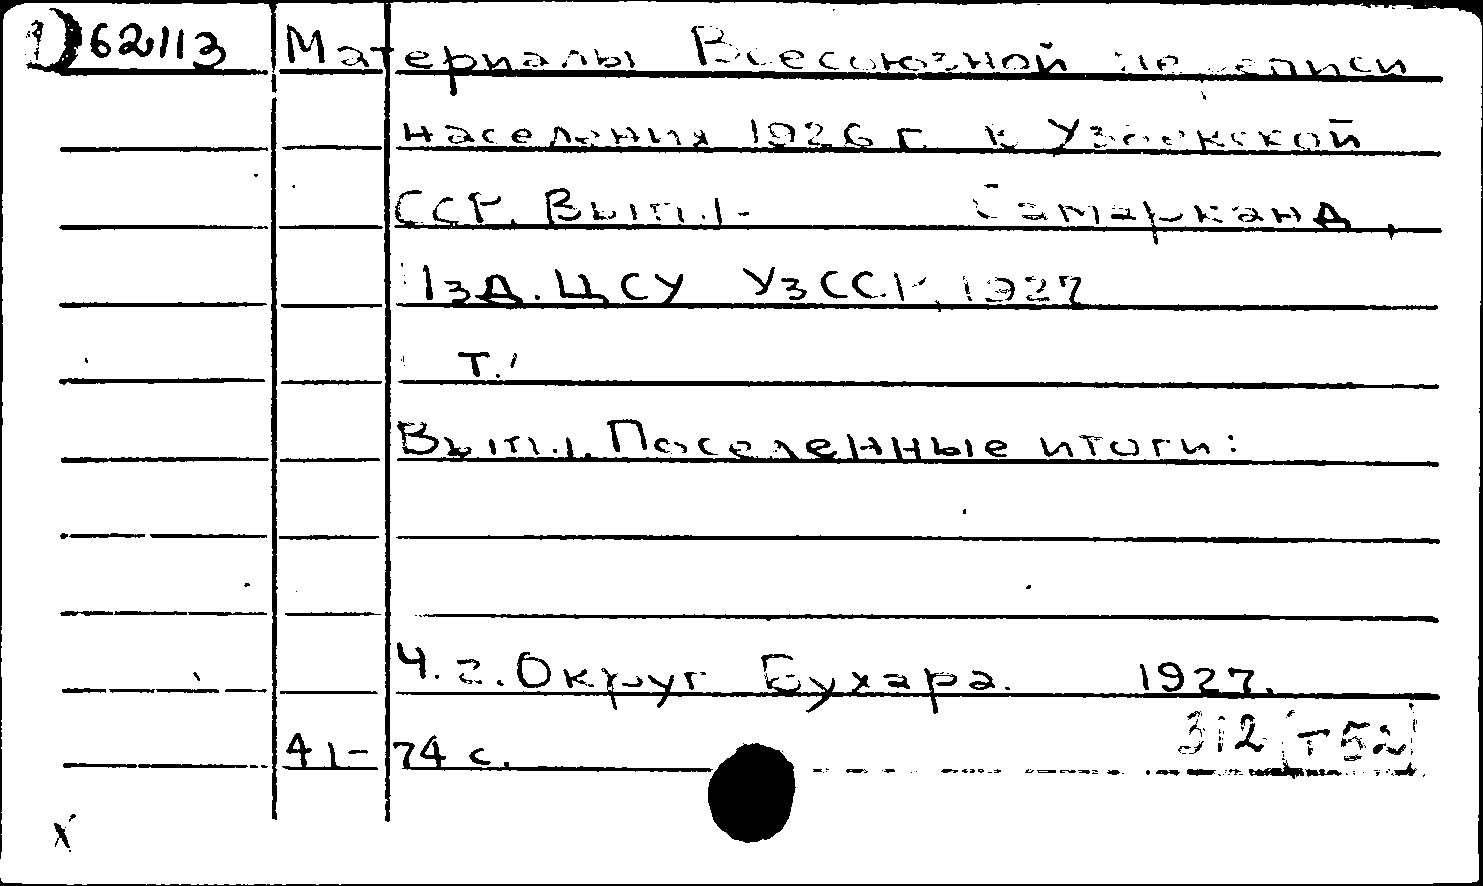 62113 Материалы Всесоюзной переписи
населения 1926 г. в Узбекской
ССР. Вып.1- Самарканд,
Изд. ЦСУ УзССР, 1927
т.
Вып.1. Поселенные итоги:
Ч.2. Округ Бухара. 1927.
312 Т52
41-74 с.
х